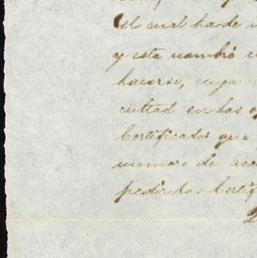 el cual ha de
y esta nombró
hacerse, cuya
cultad en las
Certificados que
número de
pedir dos Certif